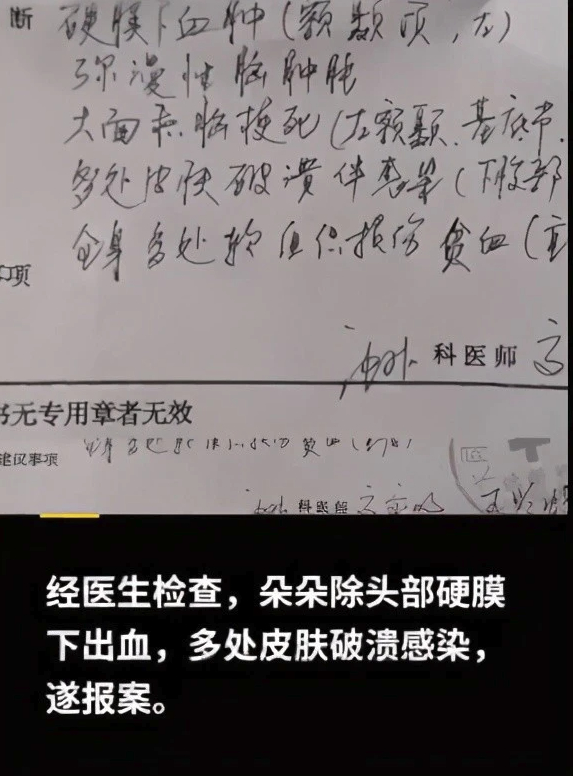 断 硬膜下血肿(额颞顶,左)
弥漫性脑肿胀
大面积脑梗死(左额颞、基底节、
多处皮肤破溃伴感染(下腹部
全身多处软组织损伤 贫血(
项
科医师
书无专用章者无效
建议事项 全身多处软组织损伤 贫血(
科医师
经医生检查，朵朵除头部硬膜
下出血，多处皮肤破溃感染，
遂报案。